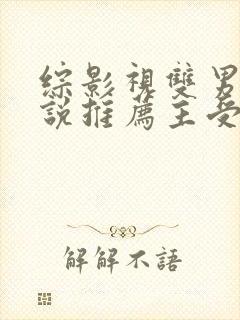 綜影視雙男
說推薦主受
解解不語